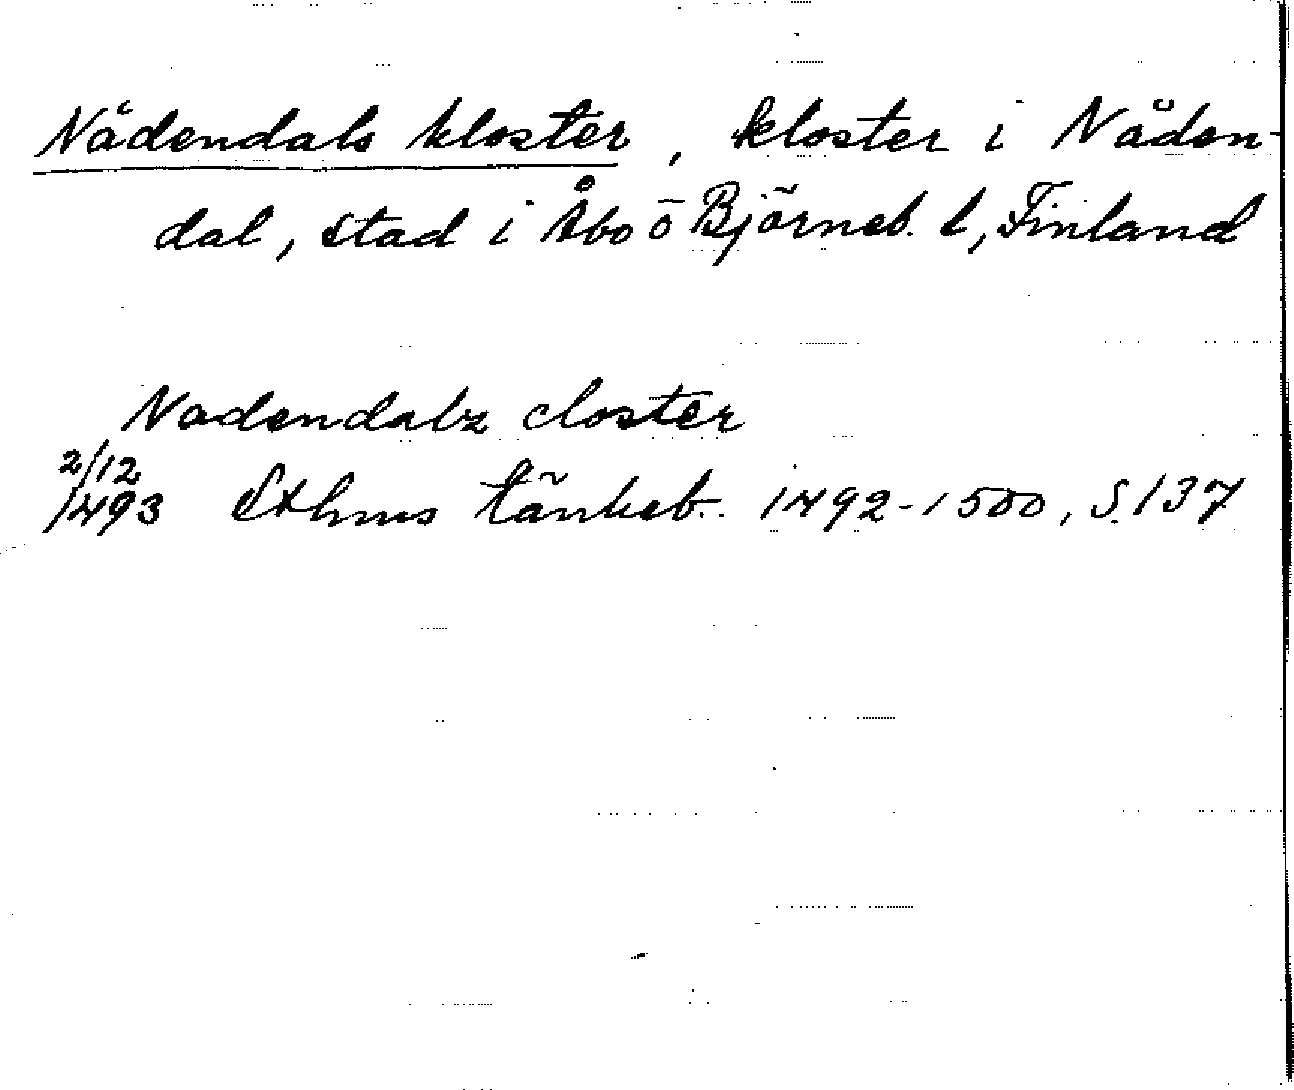 Nådendals kloster, kloster i Nåden-
dal, stad i Åbo o Björneb. l, Finland
Nadendalz closter
2/12
1493 Sthms tänkeb. 1492-1500, S. 137